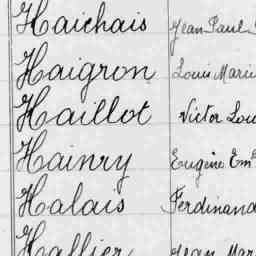 Haichais Jean Paul
Haigron Louis Marie
Haillot Victor Lou
Hainry Eugène Em
Halais Ferdinand
Hallier Jean Mar